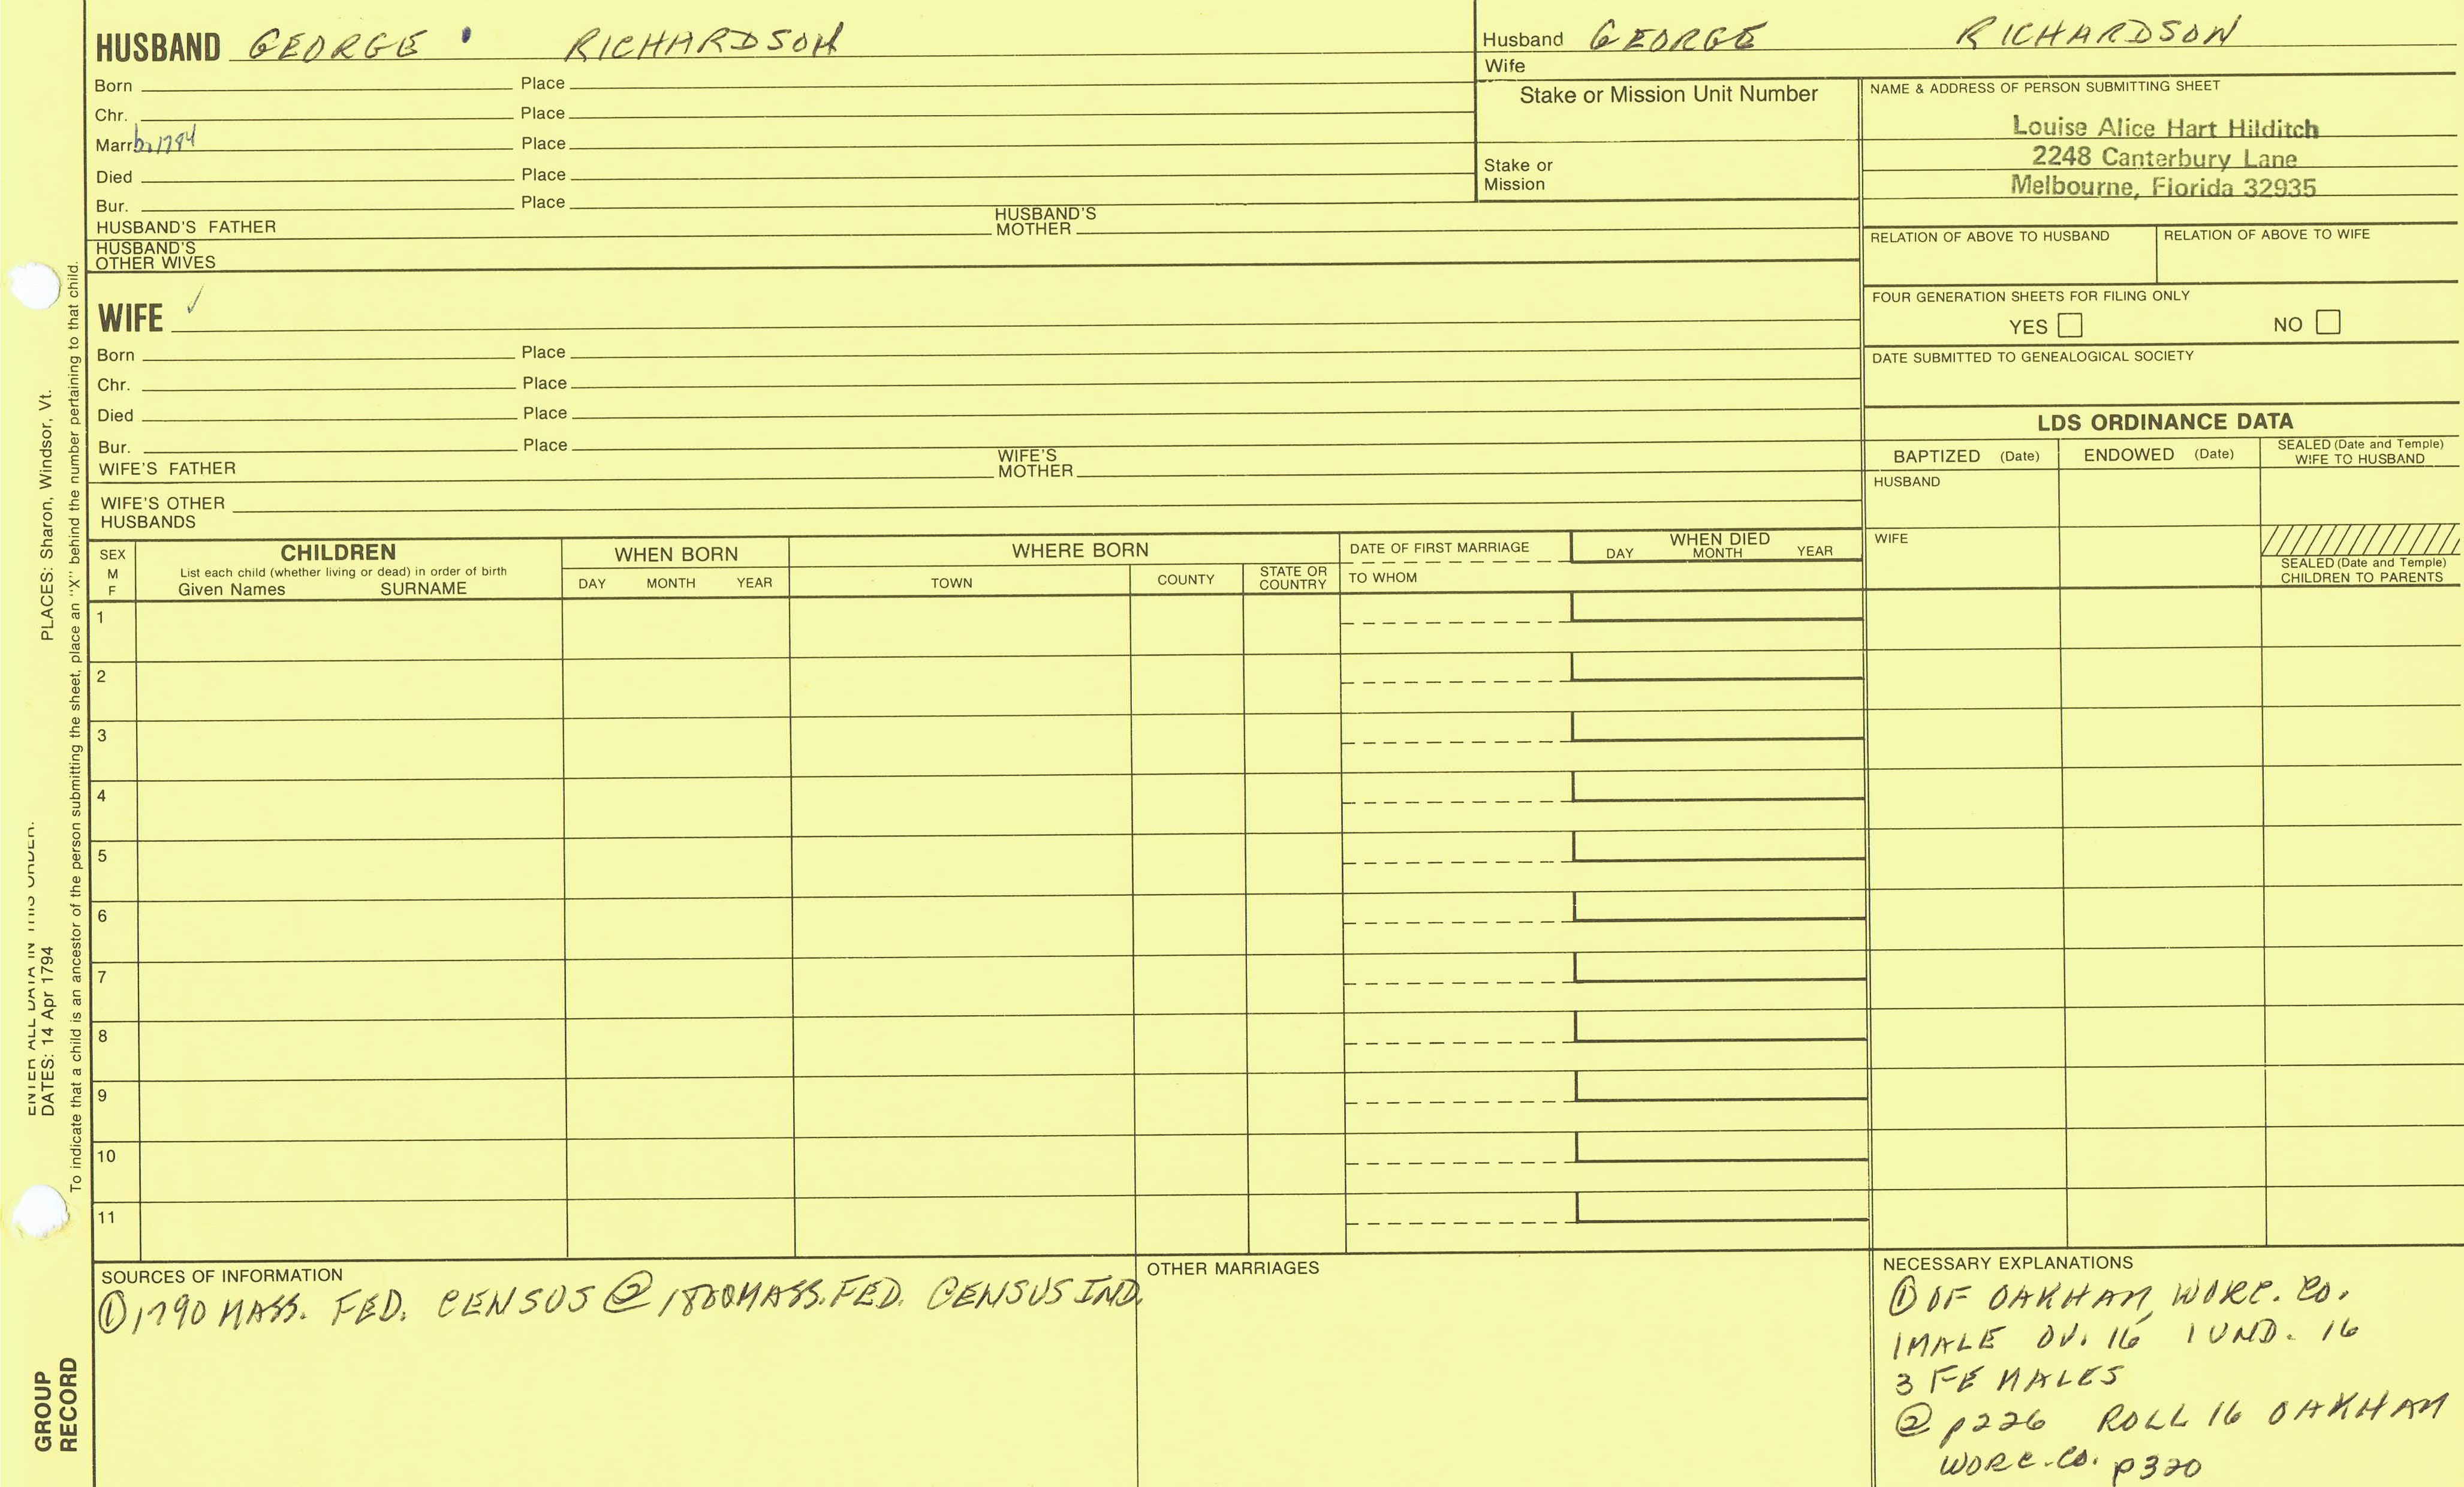 HUSBAND GEORGE RICHARDSON
Born Place
Chr. Place
Marr b. 1794 Place
Died Place
Bur. Place
HUSBAND'S FATHER HUSBAND'S MOTHER
HUSBAND'S OTHER WIVES
Husband GEORGE RICHARDSON
Wife
Stake or Mission Unit Number
Stake or Mission
NAME & ADDRESS OF PERSON SUBMITTING SHEET
Louise Alice Hart Hilditch
2248 Canterbury Lane
Melbourne, Florida 32935
RELATION OF ABOVE TO HUSBAND RELATION OF ABOVE TO WIFE
FOUR GENERATION SHEETS FOR FILING ONLY
YES NO
DATE SUBMITTED TO GENEALOGICAL SOCIETY
WIFE ✓
Born Place
Chr. Place
Died Place
Bur. Place
WIFE'S FATHER WIFE'S MOTHER
WIFE'S OTHER HUSBANDS
LDS ORDINANCE DATA
BAPTIZED (Date) ENDOWED (Date) SEALED (Date and Temple) WIFE TO HUSBAND
HUSBAND
WIFE
SEALED (Date and Temple) CHILDREN TO PARENTS
SEX M F
CHILDREN
List each child (whether living or dead) in order of birth
Given Names SURNAME
WHEN BORN
DAY MONTH YEAR
WHERE BORN
TOWN COUNTY STATE OR COUNTRY
DATE OF FIRST MARRIAGE
TO WHOM
WHEN DIED
DAY MONTH YEAR
1
2
3
4
5
6
7
8
9
10
11
SOURCES OF INFORMATION
① 1790 MASS. FED. CENSUS ② 1800 MASS. FED. CENSUS IND.
OTHER MARRIAGES
NECESSARY EXPLANATIONS
① OF OAKHAM, WORC. CO.
1 MALE OV. 16 1 UND. 16
3 FEMALES
② p226 ROLL 16 OAKHAM
WORC. CO. p320
ENTER ALL DATA IN THIS ORDER:
DATES: 14 Apr 1794 PLACES: Sharon, Windsor, Vt.
To indicate that a child is an ancestor of the person submitting the sheet, place an "X" behind the number pertaining to that child.
GROUP
RECORD